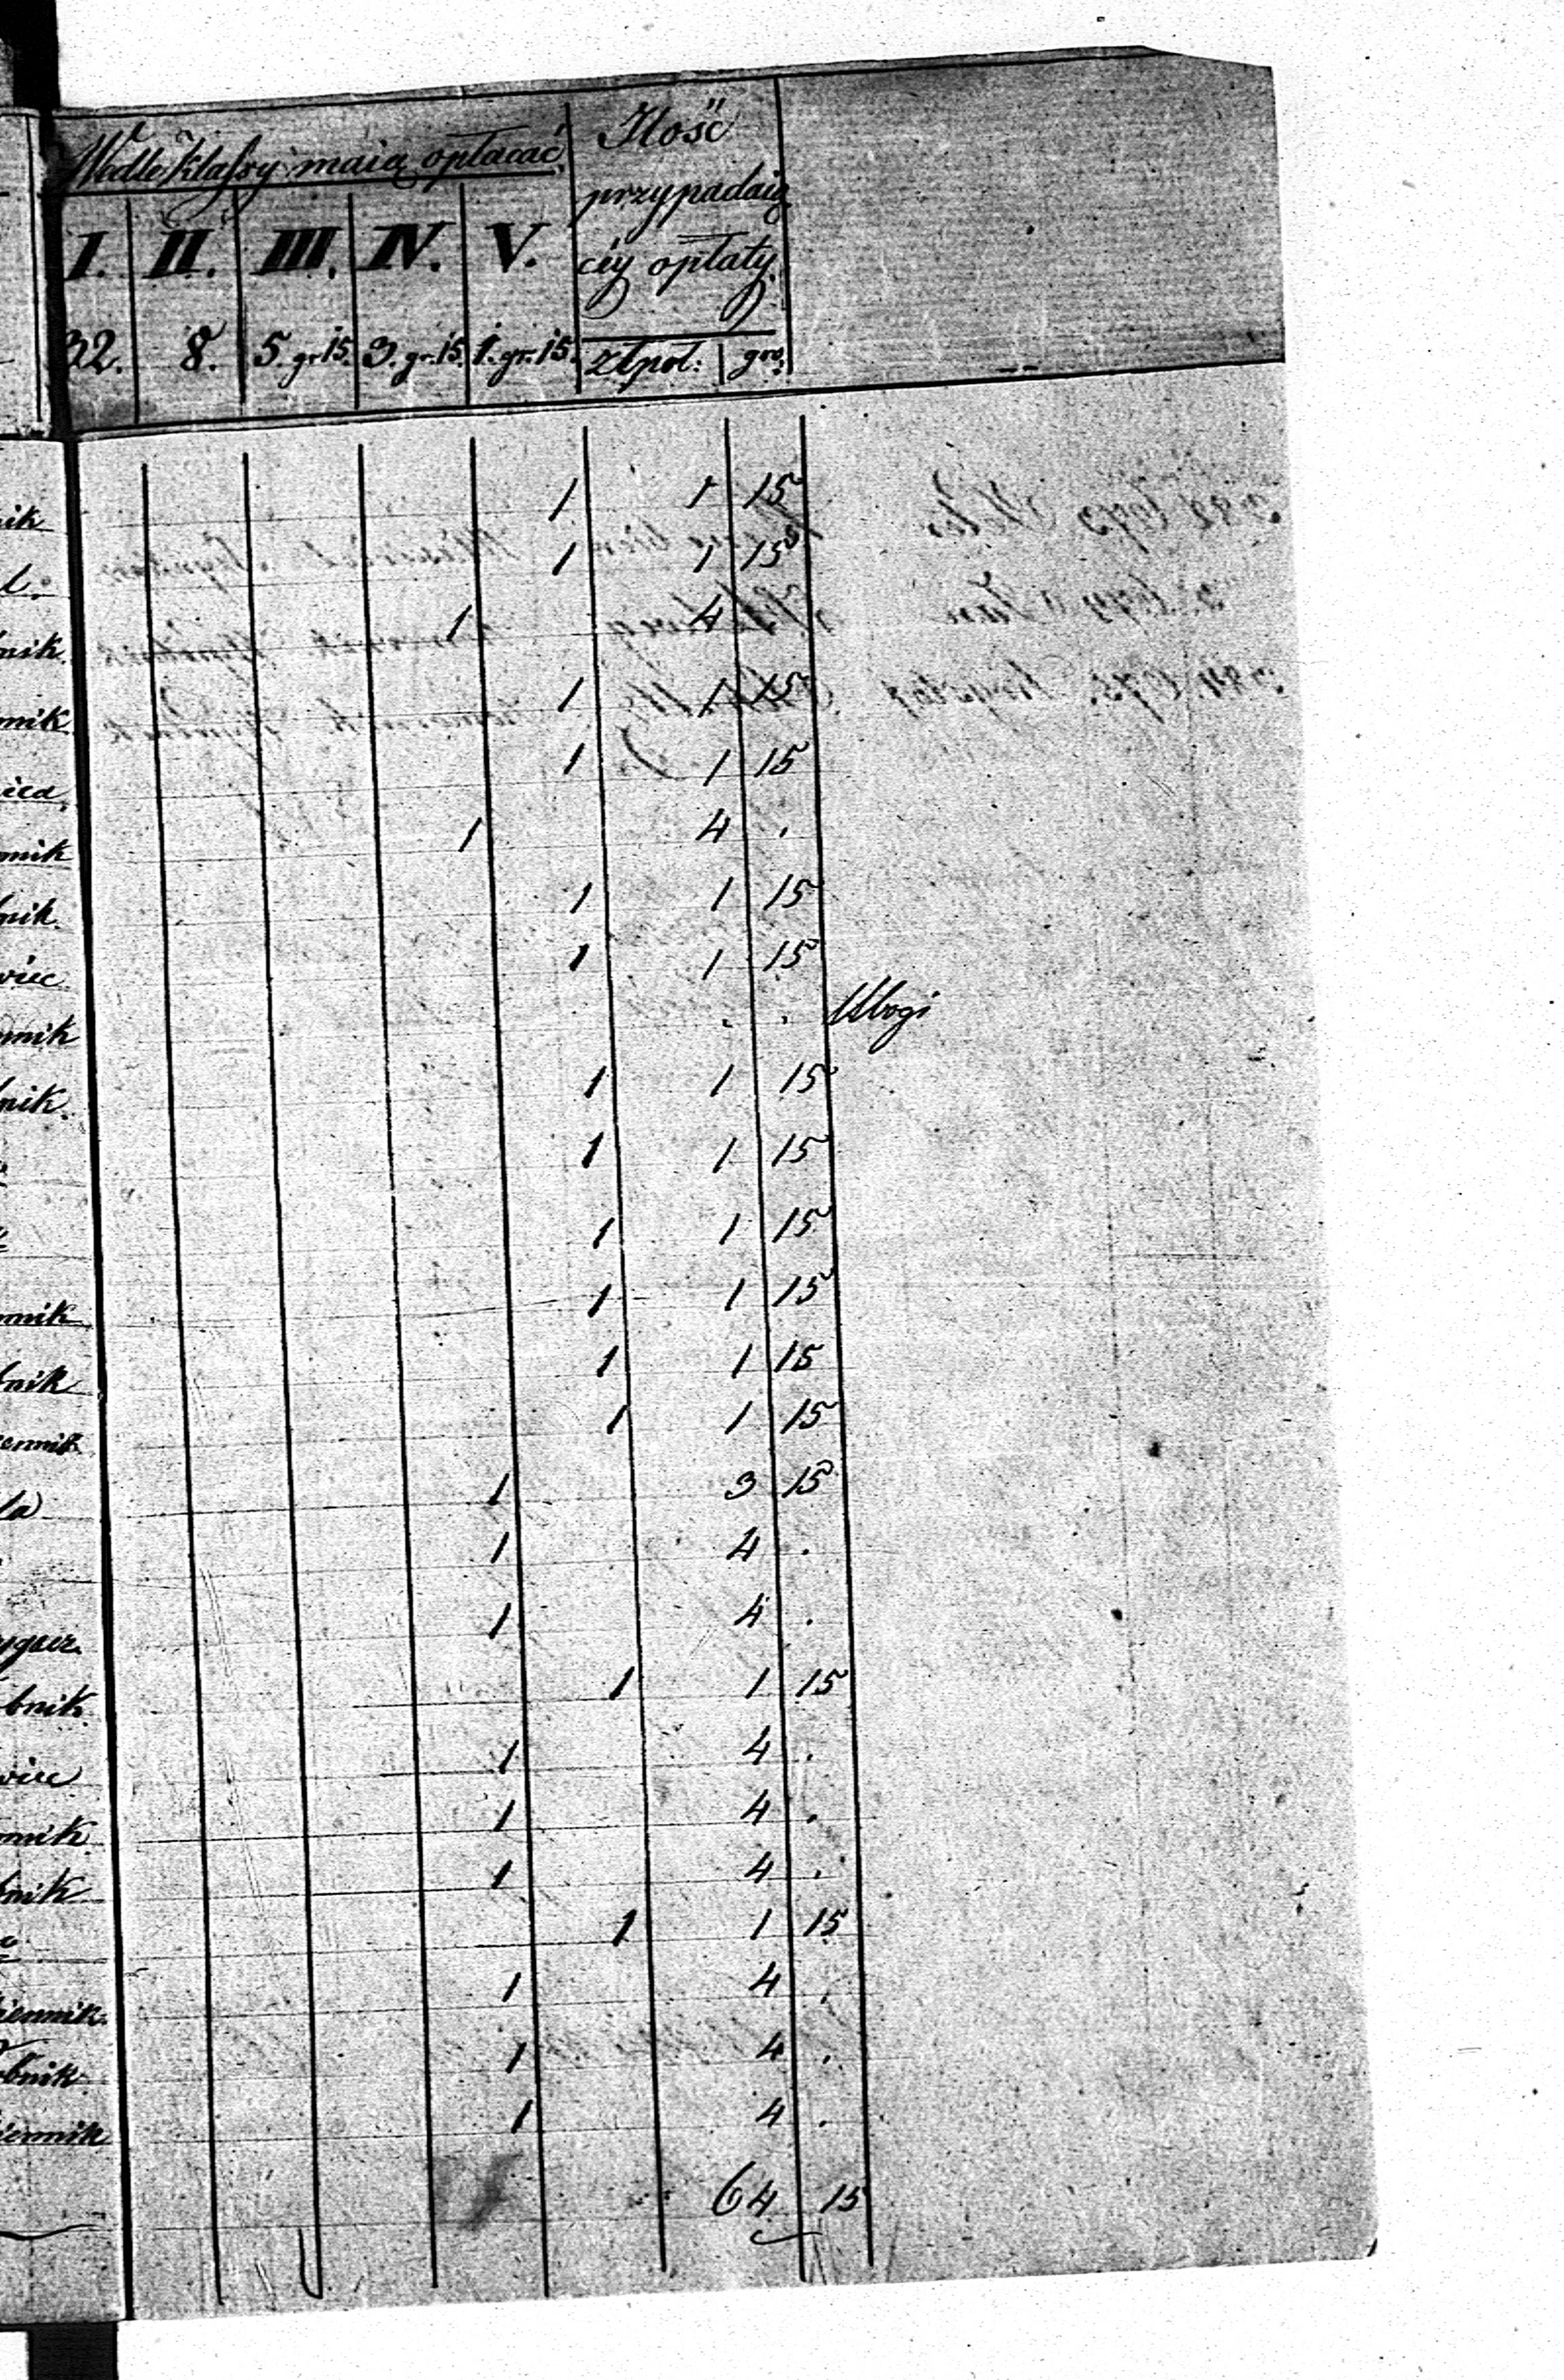 Wedle klassy maią opłacać
Ilość
przypadaią
céy opłaty.
I. II. III. IV. V.
32. 8. 5. gr. 15. 3. gr. 15. 1. gr. 15. złpol: gro:
nik 1 1 15
1 1 15
nik. 1 4
nik. 1 1 15
1 1 15
nik 1 4 .
nik. 1 1 15
wiec 1 1 15
nnik . . Ubogi
nik. 1 1 15
1 1 15
1 1 15
nnik 1 1 15
nik 1 1 15
ennik 1 1 15
la 1 3 15
1 4 .
1 4 .
bnik. 1 1 15
wiec 1 4 .
nnik. 1 4 .
nik 1 4 .
1 1 15
iennik. 1 4 .
bnik 1 4 .
iennik 1 4 .
64 15